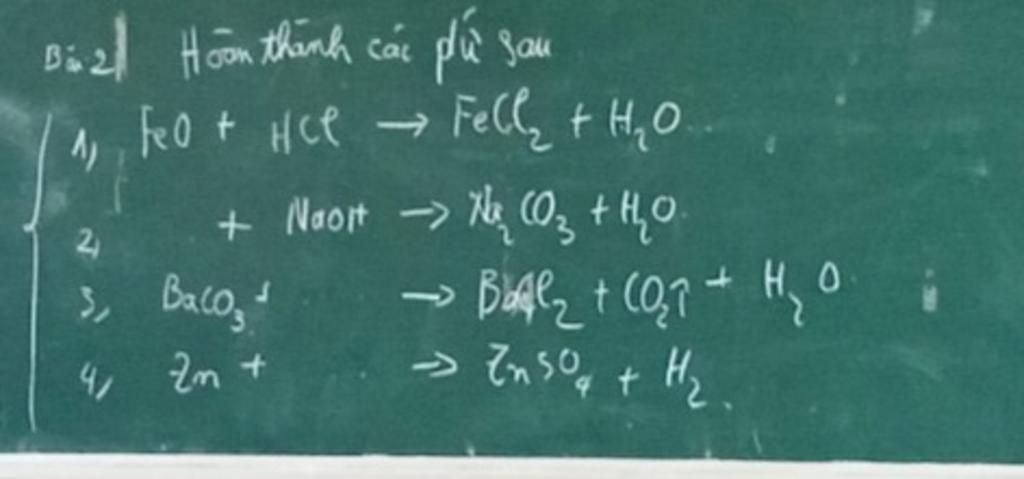 Bài 2 Hoàn thành các pứ sau
1, FeO + HCl → FeCl₂ + H₂O
2, + NaOH → Na₂CO₃ + H₂O
3, BaCO₃ + → BaCl₂ + CO₂↑ + H₂O
4, Zn + → ZnSO₄ + H₂.